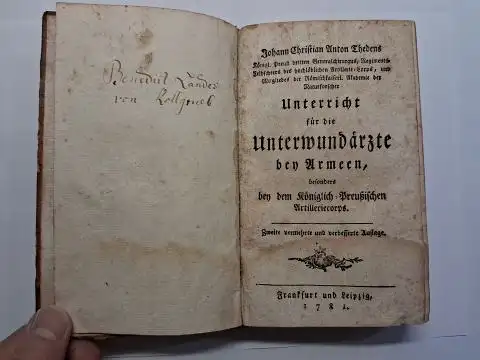 Benedikt
von
Johann Christian Anton Thedens
Königl. Preuß dritten Generalchirurgus, Regiments-
Feldscheers des hochlöblichen Artillerie-Corps, und
Mitgliedes der Römischkaiserl. Akademie der
Naturforscher
Unterricht
für die
Unterwundärzte
bey Armeen,
besonders
bey dem Königlich-Preußischen
Artilleriecorps.
Zweite vermehrte und verbesserte Auflage.
Frankfurt und Leipzig,
1782.